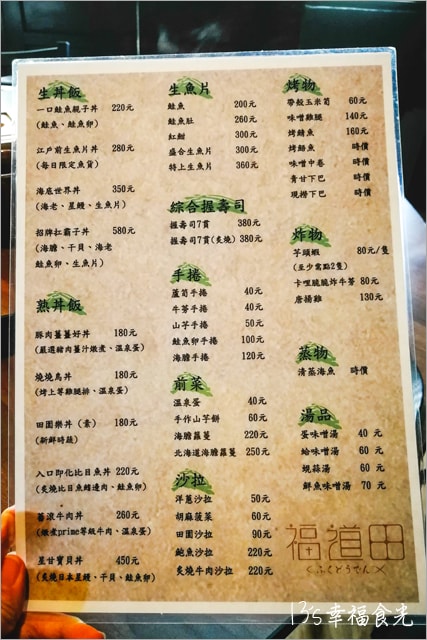 生丼飯
一口鮭魚親子丼 220元
(鮭魚、鮭魚卵)
江戶前生魚片丼 280元
(每日限定魚貨)
海底世界丼 350元
(海老、星鰻、生魚片)
招牌扛霸子丼 580元
(海膽、干貝、海老
鮭魚卵、生魚片)
熟丼飯
豚肉薑薑好丼 180元
(嚴選豬肉薑汁燉煮、溫泉蛋)
燒燒鳥丼 180元
(烤上等雞腿排、溫泉蛋)
田園樂丼 (素) 180元
(新鮮時蔬)
入口即化比目魚丼 220元
(炙燒比目魚鰭邊肉、鮭魚卵)
蕃滾牛肉丼 260元
(燉煮prime等級牛肉、溫泉蛋)
星甘寶貝丼 450元
(炙燒日本星鰻、干貝、鮭魚卵)
生魚片
鮭魚 200元
鮭魚肚 260元
紅魽 300元
盛合生魚片 300元
特上生魚片 360元
綜合握壽司
握壽司7貫 380元
握壽司7貫(炙燒) 380元
手捲
蘆筍手捲 40元
牛蒡手捲 40元
山芋手捲 50元
鮭魚卵手捲 100元
海膽手捲 120元
前菜
溫泉蛋 40元
手作山芋餅 60元
海膽蘿蔔 220元
北海道海膽蘿蔔 250元
沙拉
洋蔥沙拉 50元
胡麻菠菜 60元
田園沙拉 90元
鮑魚沙拉 220元
炙燒牛肉沙拉 220元
烤物
帶殼玉米筍 60元
味噌雞腿 140元
烤鯖魚 160元
烤鰆魚 時價
味噌中卷 時價
青甘下巴 時價
現撈下巴 時價
炸物
芋頭蝦 80元/隻
(至少需點2隻)
卡哩脆脆炸牛蒡 80元
唐揚雞 130元
蒸物
清蒸海魚 時價
湯品
蛋味噌湯 40 元
蛤味噌湯 60 元
蜆蒜湯 60 元
鮮魚味噌湯 70 元
福道田
くふくどうでん
13's幸福食光